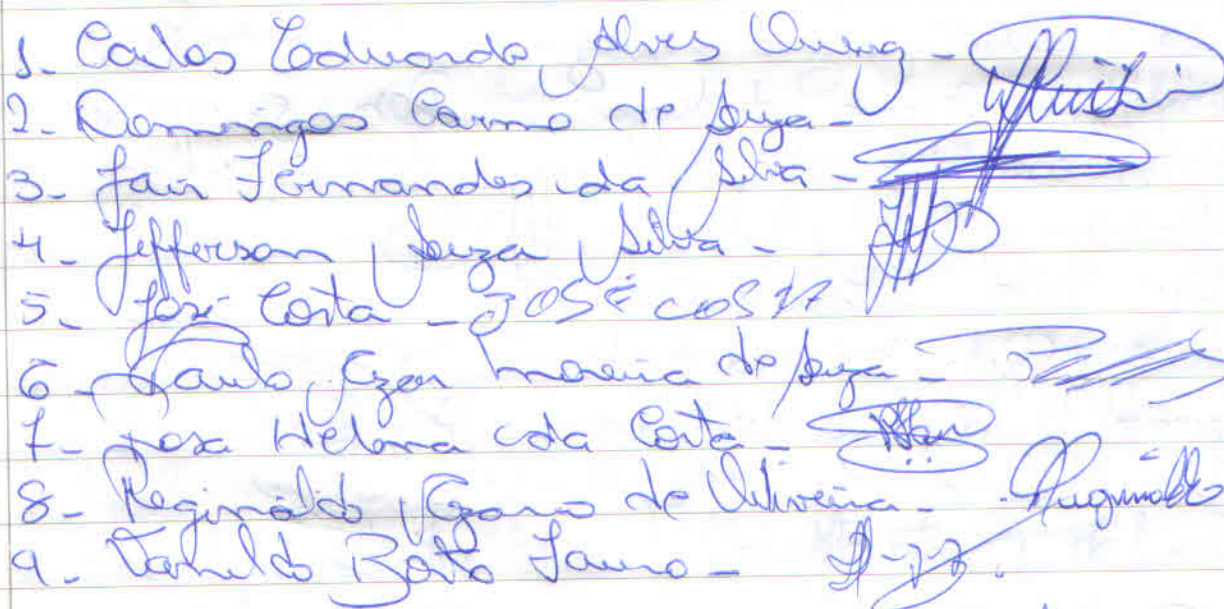 1- Carlos Eduardo Alves
2- Domingos Carmo de Souza -
3- Jair Fernandes da Silva -
4- Jefferson Souza Silva -
5- José Costa - JOSÉ COSTA
6- Paulo Cezar Moreira de Souza -
7- Rosa Helena da Costa -
8- Reginaldo de Oliveira - Reginaldo
9- Lauro -